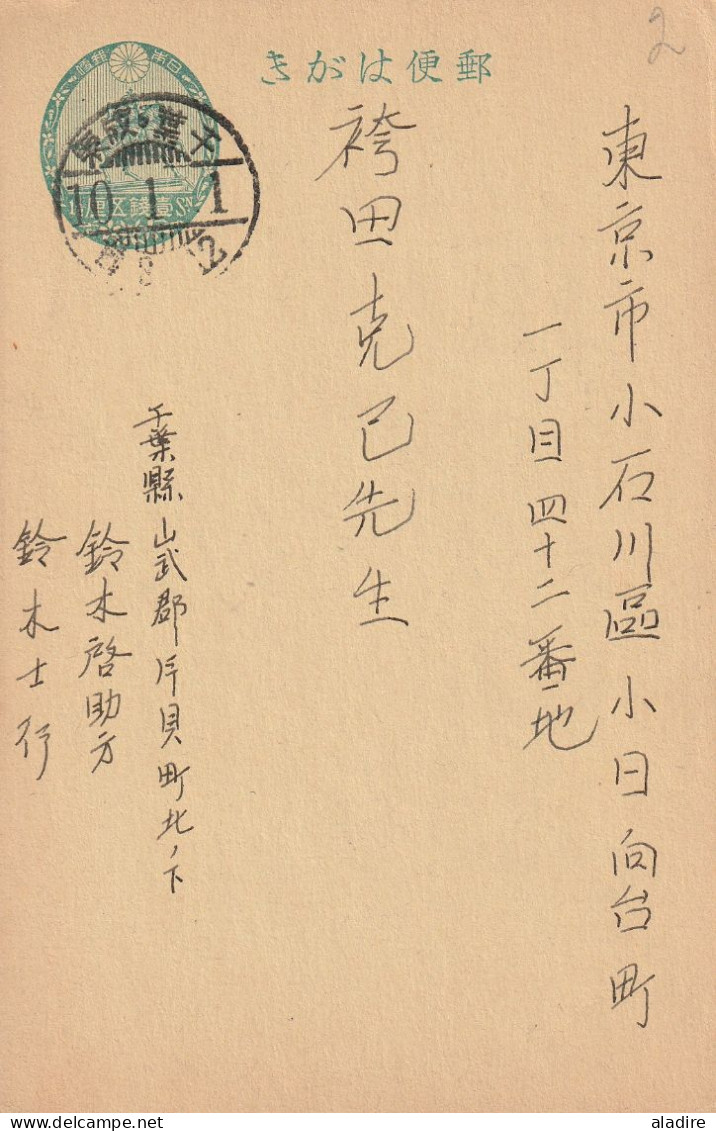 郵便はがき
2
東京市小石川區小日向台町
一丁目四十二番地
袴田克己先生
千葉縣山武郡片貝町北ノ下
鈴木啓助方
鈴木士行
10.1.1
delcampe.net
aladire